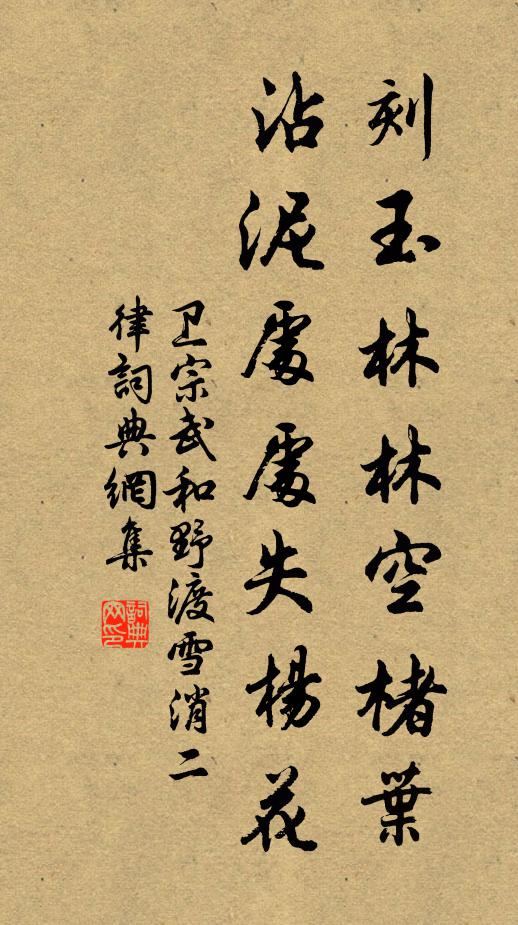 刻玉林林空楮葉
沾泥處處失楊花
卫宗武和野渡雪消二
律詞典網集
詞典
网印